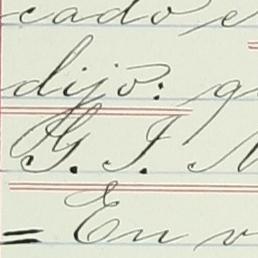 cado e
dijo: q
G. I. N
= En v